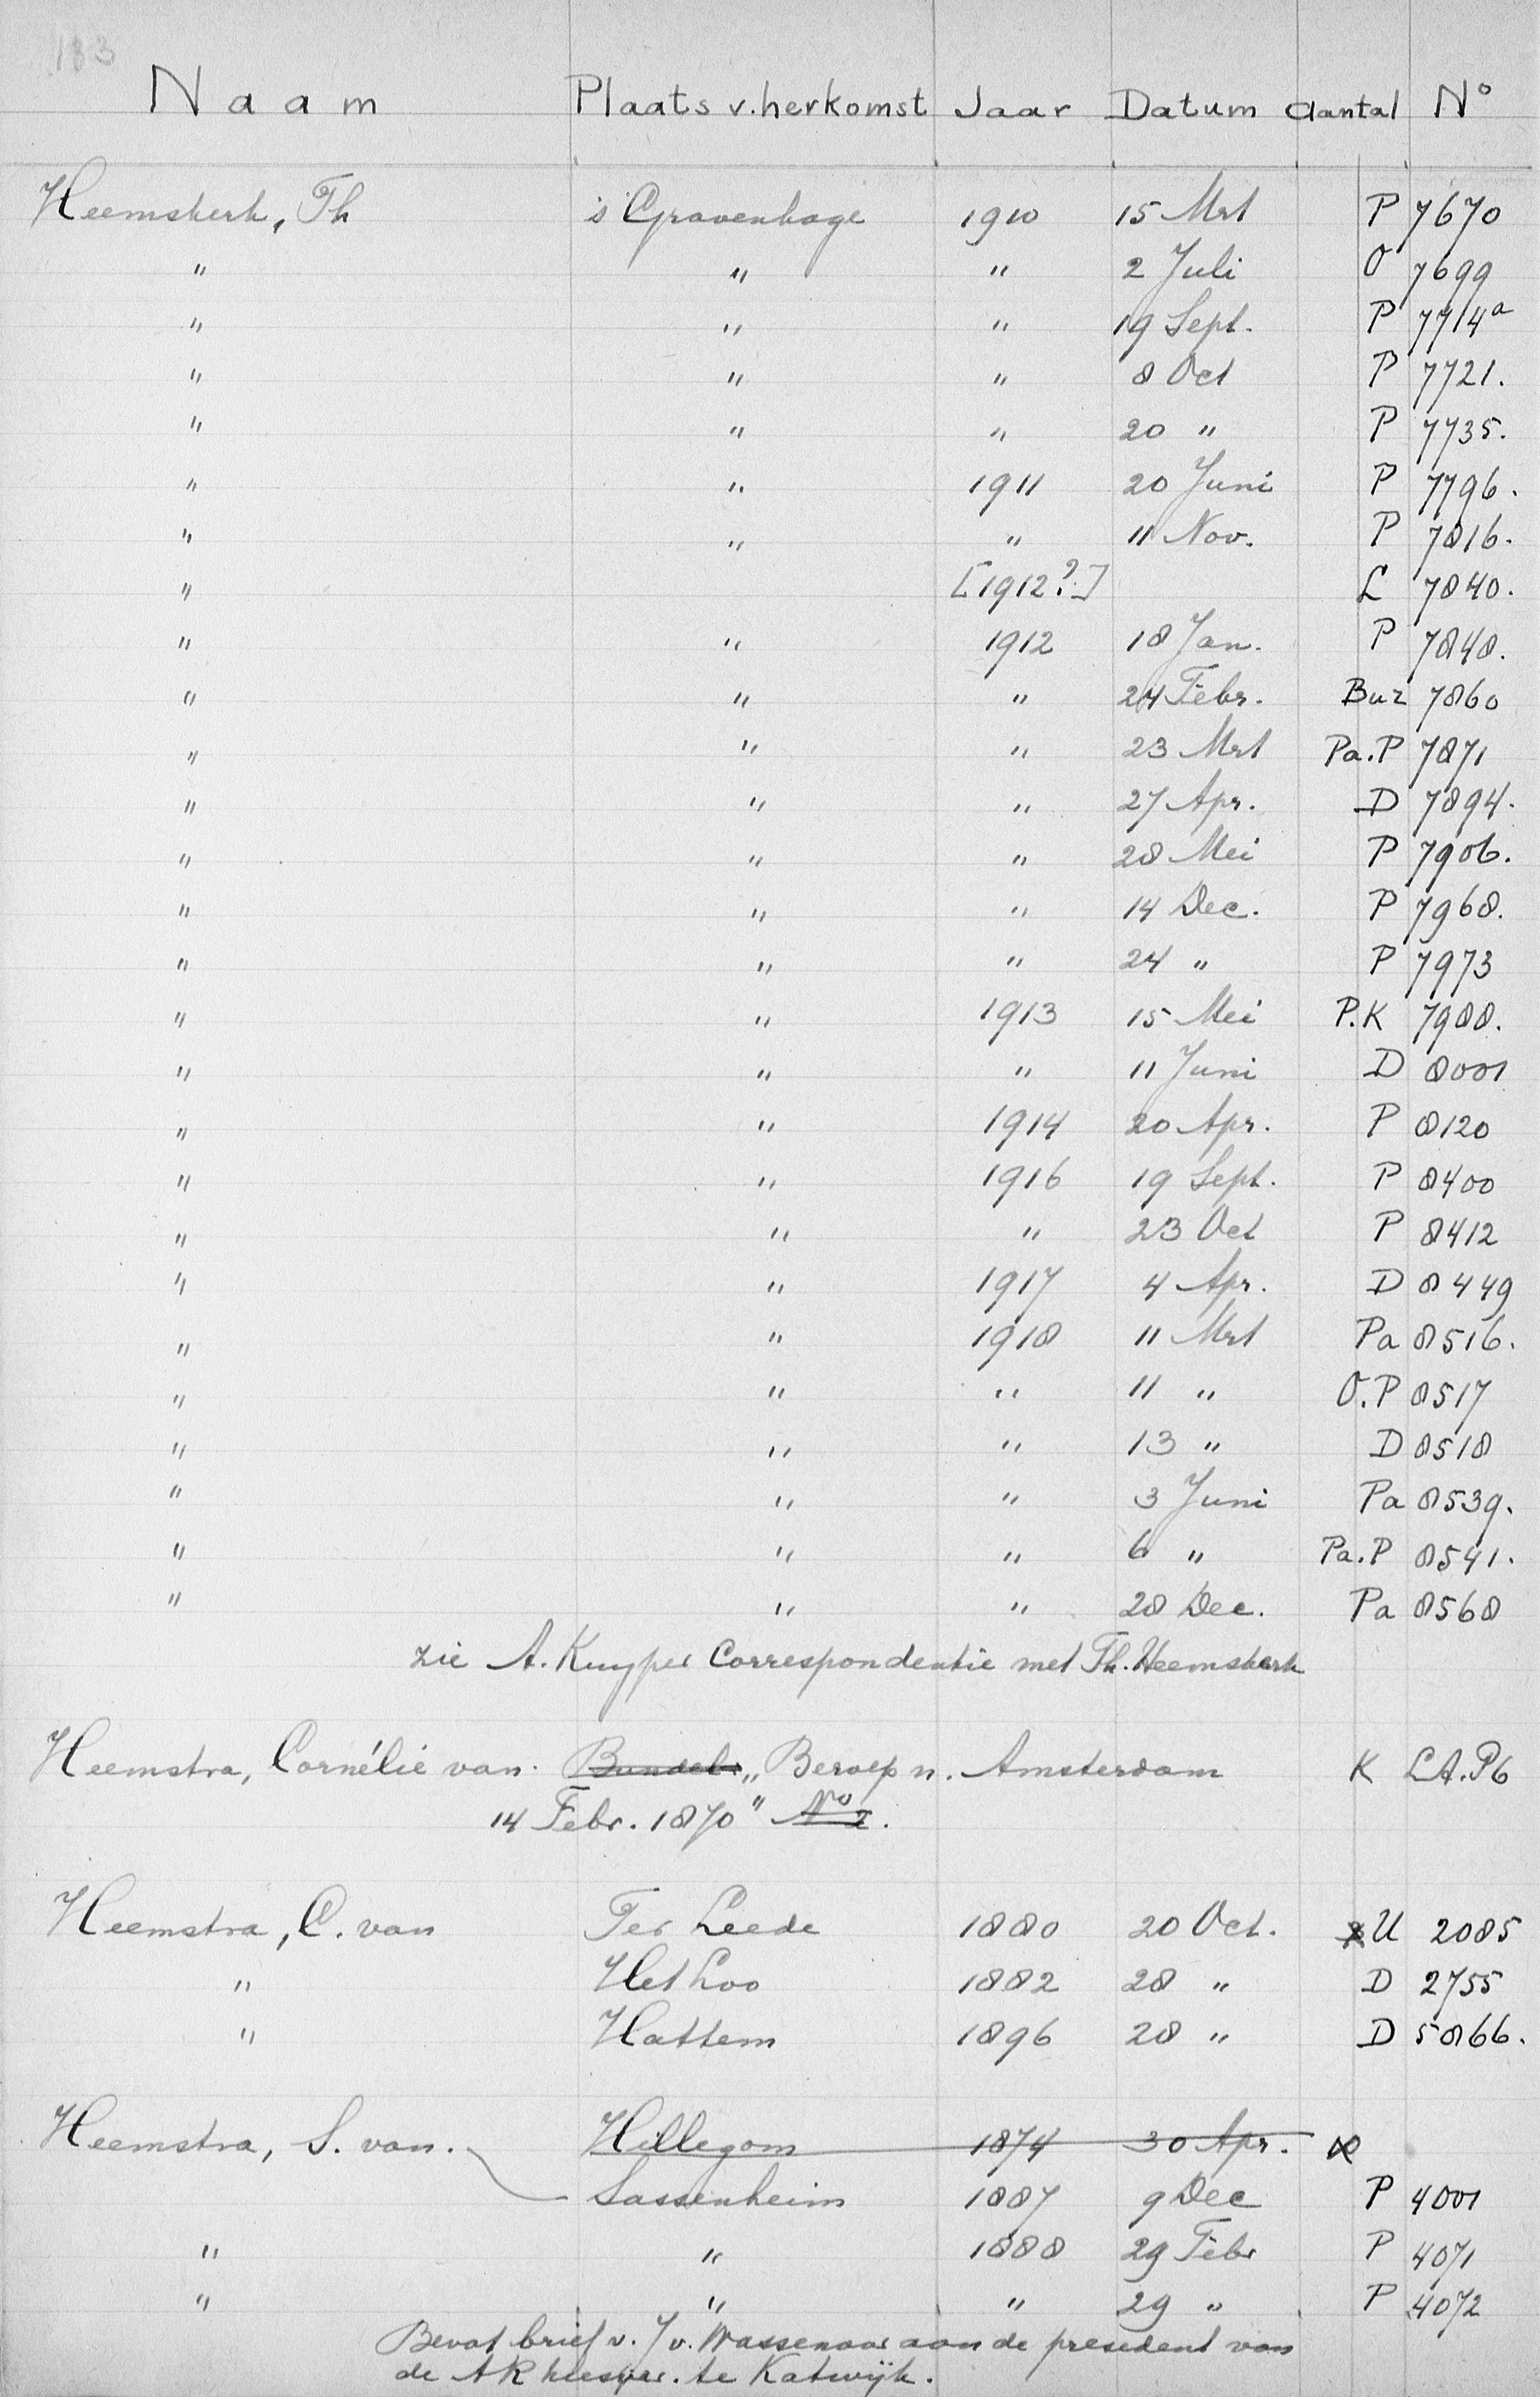 183
Naam Plaats v. herkomst Jaar Datum aantal No
Heemskerk, Th 's Gravenhage 1910 15 Mrt P 7670
" " " 2 Juli O 7699
" " " 19 Sept. P 7714a
" " " 8 Oct P 7721.
" " " 20 " P 7735.
" " 1911 20 Juni P 7796.
" " " 11 Nov. P 7816.
" [1912?] L 7840.
" " 1912 18 Jan. P 7848.
" " " 24 Febr. Buz 7860
" " " 23 Mrt Pa.P 7871
" " " 27 Apr. D 7894.
" " " 28 Mei P 7906.
" " " 14 Dec. P 7968.
" " " 24 " P 7973
" " 1913 15 Mei P.K 7988.
" " " 11 Juni D 8001
" " 1914 20 Apr. P 8120
" " 1916 19 Sept. P 8400
" " " 23 Oct P 8412
" " 1917 4 Apr. D 8449
" " 1918 11 Mrt Pa 8516.
" " " 11 " O.P 8517
" " " 13 " D 8518
" " " 3 Juni Pa 8539.
" " " 6 " Pa.P 8541.
" " " 28 Dec. Pa 8568
zie A. Kuyper Correspondentie met Th. Heemskerk
Heemstra, Cornélie van. Bundel „Beroep n. Amsterdam K LA.P6
14 Febr. 1870" No 2.
Heemstra, C. van Ter Leede 1880 20 Oct. U 2085
" Het Loo 1882 28 " D 2755
" Hattem 1896 28 " D 5866.
Heemstra, S. van. Hillegom 1874 30 Apr.
Sassenheim 1887 9 Dec P 4001
" " 1888 29 Febr P 4071
" " " 29 " P 4072
Bevat brief v. J v. Wassenaar aan de president van
de AR kiesver. te Katwijk.